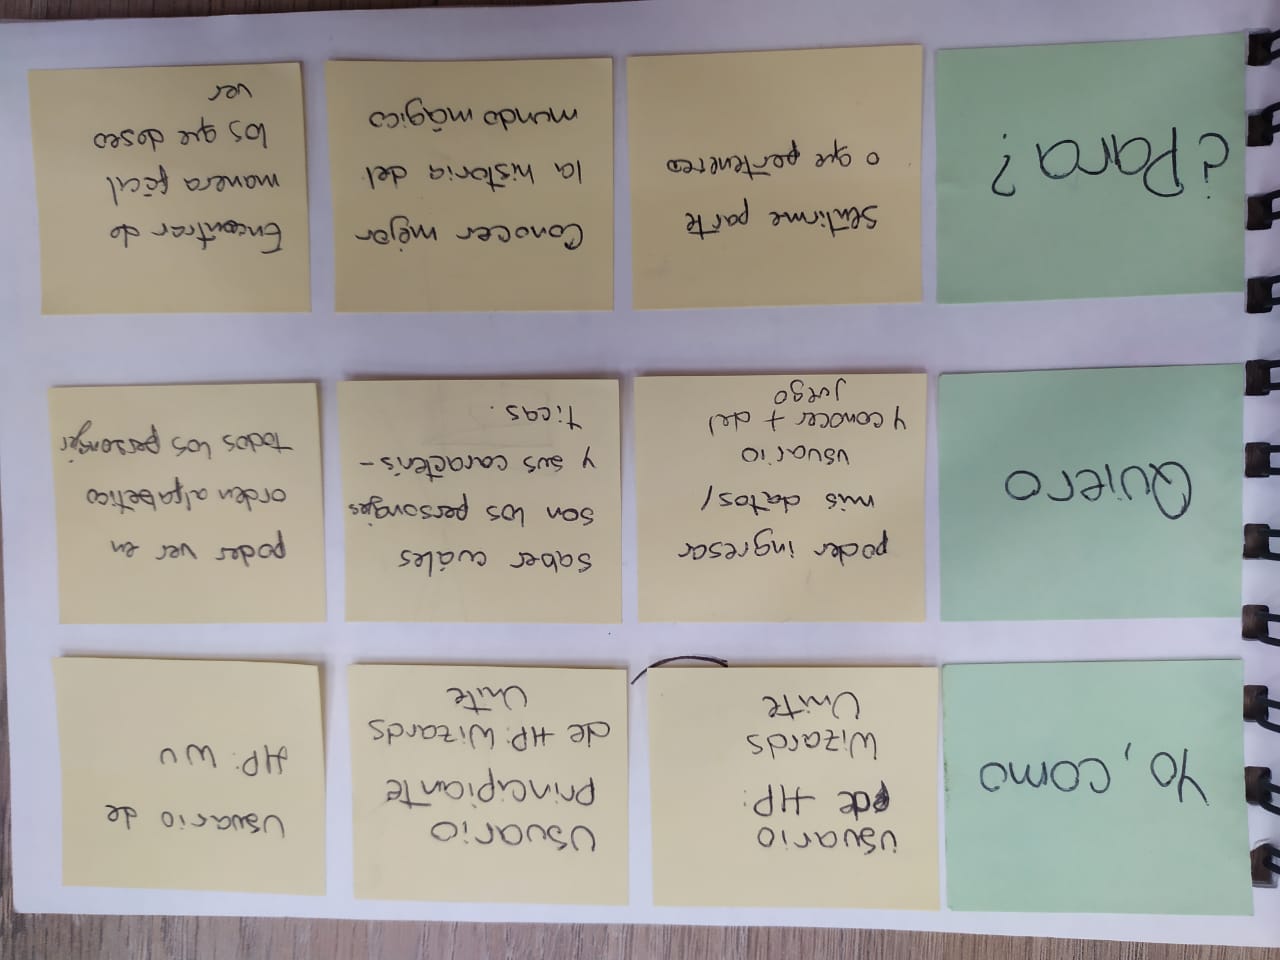 Yo, como
usuario
de HP:
Wizards
Unite
Usuario
Principiante
de HP: Wizards
Unite
Usuario de
HP: WU
Quiero
poder ingresar
mis datos/
usuario
y conocer + del
juego
saber cuáles
son los personajes
y sus caracterís-
ticas.
poder ver en
orden alfabético
todos los personajes
¿Para?
sentirme parte
o que pertenezco
Conocer mejor
la historia del
mundo mágico
Encontrar de
manera fácil
los que deseo
ver